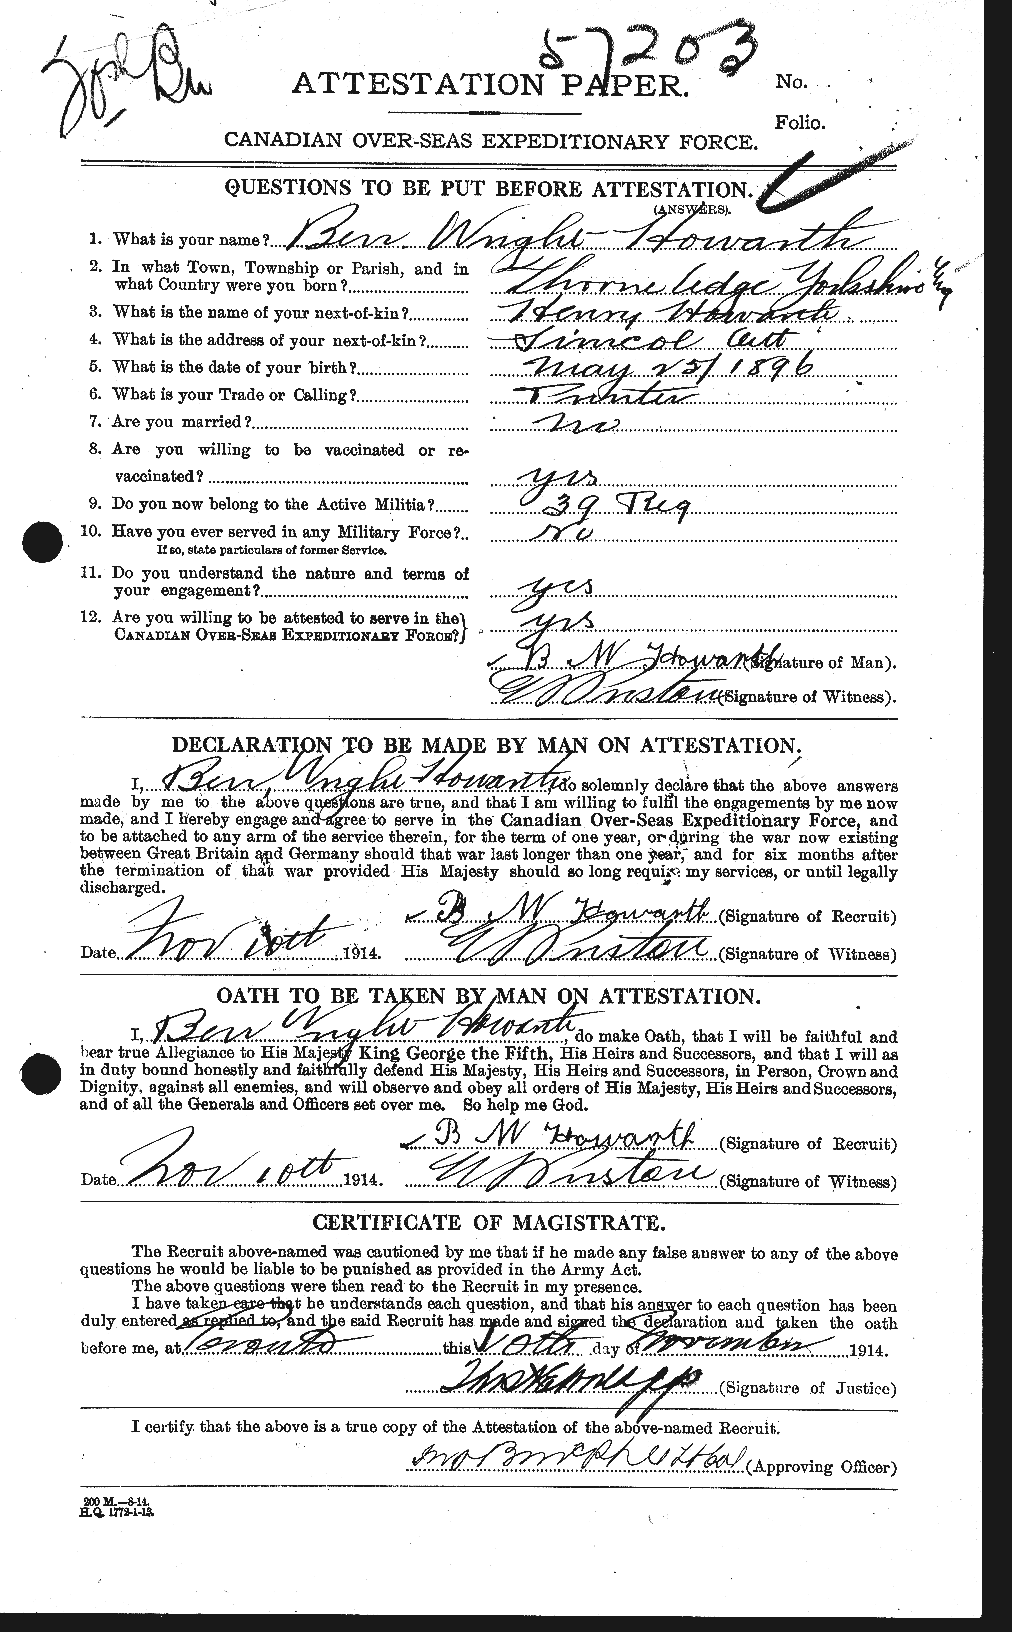 20th Bn
57203
ATTESTATION PAPER.
No.
Folio.
CANADIAN OVER-SEAS EXPEDITIONARY FORCE.
QUESTIONS TO BE PUT BEFORE ATTESTATION.
(ANSWERS).
1. What is your name? Ben. Wright Howarth
2. In what Town, Township or Parish, and in
what Country were you born? Thorne Edge Yorkshire Eng
3. What is the name of your next-of-kin? Henry Howarth
4. What is the address of your next-of-kin? Simcoe Ont
5. What is the date of your birth? May 25/1896
6. What is your Trade or Calling? Printer
7. Are you married? No
8. Are you willing to be vaccinated or re-
vaccinated? yes
9. Do you now belong to the Active Militia? 39 Reg
10. Have you ever served in any Military Force? No
If so, state particulars of former Service.
11. Do you understand the nature and terms of
your engagement? yes
12. Are you willing to be attested to serve in the
CANADIAN OVER-SEAS EXPEDITIONARY FORCE? yes
B W Howarth (Signature of Man).
(Signature of Witness).
DECLARATION TO BE MADE BY MAN ON ATTESTATION.
I, Ben, Wright Howarth, do solemnly declare that the above answers
made by me to the above questions are true, and that I am willing to fulfil the engagements by me now
made, and I hereby engage and agree to serve in the Canadian Over-Seas Expeditionary Force, and
to be attached to any arm of the service therein, for the term of one year, or during the war now existing
between Great Britain and Germany should that war last longer than one year, and for six months after
the termination of that war provided His Majesty should so long require my services, or until legally
discharged.
B W Howarth (Signature of Recruit)
Date Nov 10th 1914. (Signature of Witness)
OATH TO BE TAKEN BY MAN ON ATTESTATION.
I, Ben Wright Howarth, do make Oath, that I will be faithful and
bear true Allegiance to His Majesty King George the Fifth, His Heirs and Successors, and that I will as
in duty bound honestly and faithfully defend His Majesty, His Heirs and Successors, in Person, Crown and
Dignity, against all enemies, and will observe and obey all orders of His Majesty, His Heirs and Successors,
and of all the Generals and Officers set over me. So help me God.
B W Howarth (Signature of Recruit)
Date Nov 10th 1914. (Signature of Witness)
CERTIFICATE OF MAGISTRATE.
The Recruit above-named was cautioned by me that if he made any false answer to any of the above
questions he would be liable to be punished as provided in the Army Act.
The above questions were then read to the Recruit in my presence.
I have taken care that he understands each question, and that his answer to each question has been
duly entered as replied to, and the said Recruit has made and signed the declaration and taken the oath
before me, at Toronto this 10th day of November 1914.
(Signature of Justice)
I certify that the above is a true copy of the Attestation of the above-named Recruit.
(Approving Officer)
200 M.—8-14.
H.Q. 1772-1-13.